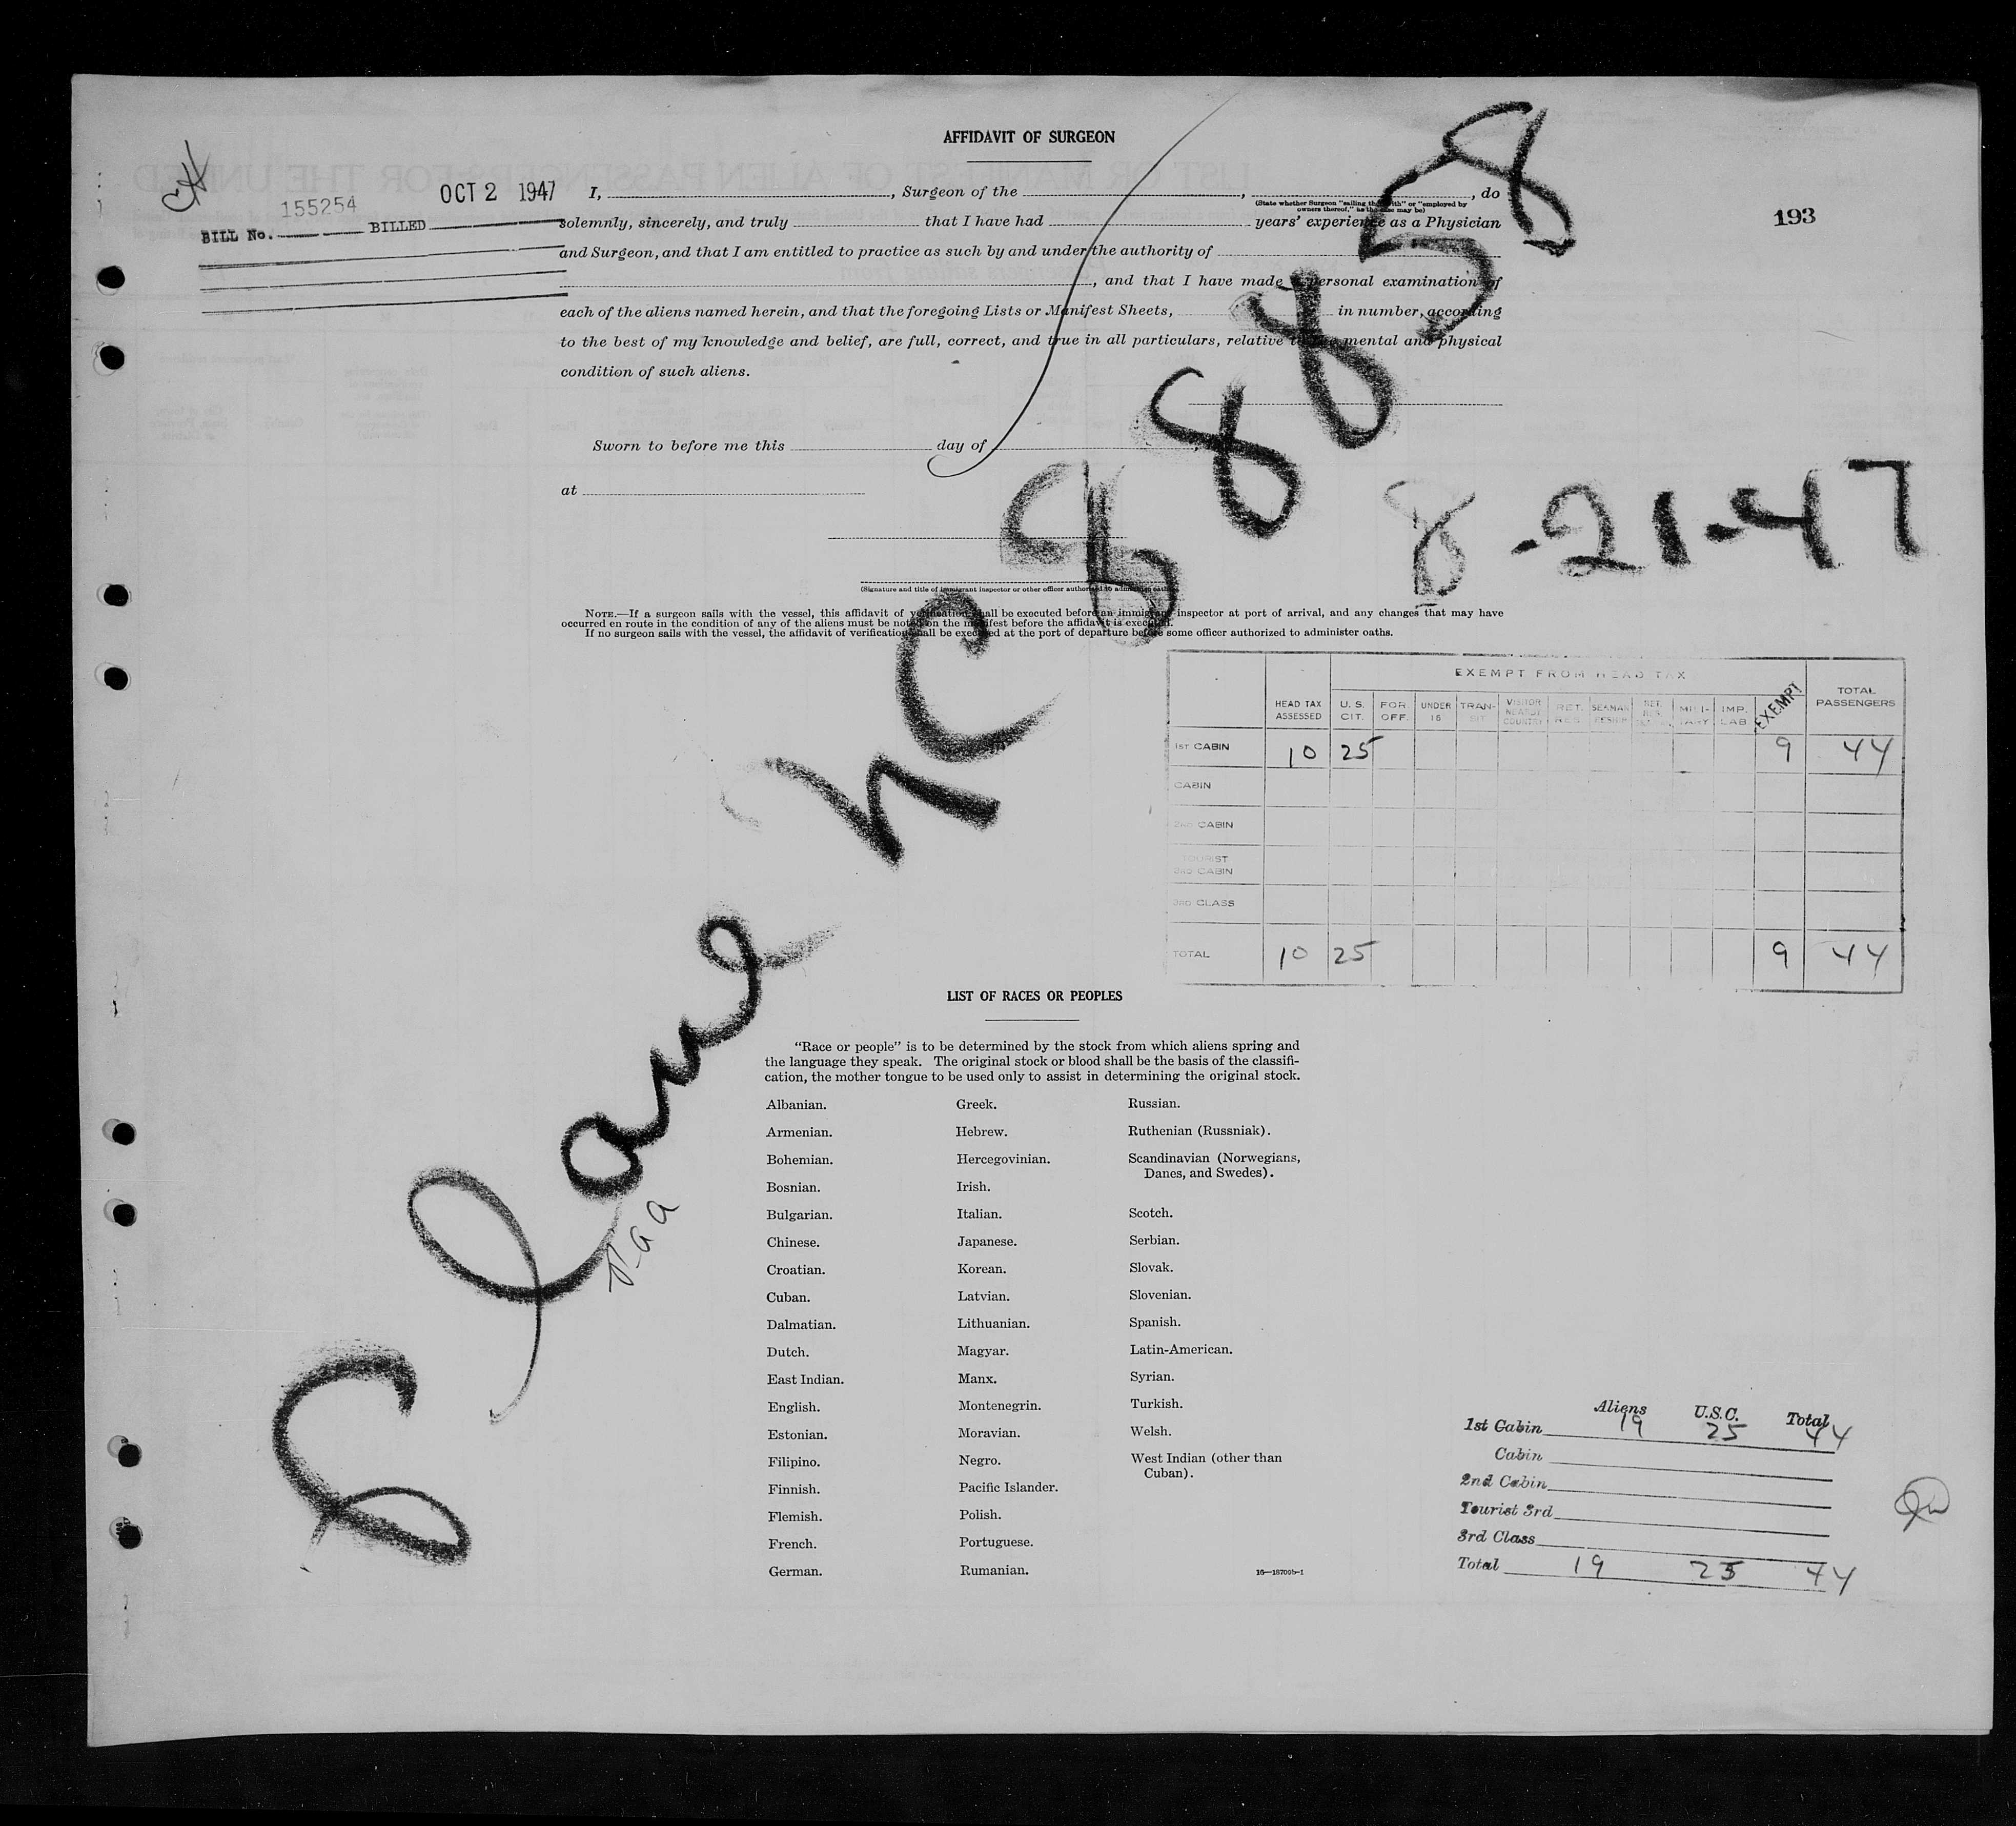 AFFIDAVIT OF SURGEON
155254
OCT 2 1947
BILL No. BILLED
193
I, , Surgeon of the , , do
(State whether Surgeon "sailing therewith" or "employed by
owners thereof," as the case may be)
solemnly, sincerely, and truly that I have had years' experience as a Physician
and Surgeon, and that I am entitled to practice as such by and under the authority of
, and that I have made a personal examination of
each of the aliens named herein, and that the foregoing Lists or Manifest Sheets, in number, according
to the best of my knowledge and belief, are full, correct, and true in all particulars, relative to the mental and physical
condition of such aliens.
Sworn to before me this day of
at
(Signature and title of immigrant inspector or other officer authorized to administer oaths)
NOTE.—If a surgeon sails with the vessel, this affidavit of verification shall be executed before an immigrant inspector at port of arrival, and any changes that may have
occurred en route in the condition of any of the aliens must be noted on the manifest before the affidavit is executed.
If no surgeon sails with the vessel, the affidavit of verification shall be executed at the port of departure before some officer authorized to administer oaths.
Plane NC 88858
8-21-47
Paa
EXEMPT FROM HEAD TAX
HEAD TAX ASSESSED U.S. CIT. FOR. OFF. UNDER 16 TRANSIT VISITOR NEARBY COUNTRY RET. RES. SEAMAN MILITARY IMP. LAB EXEMPT TOTAL PASSENGERS
1ST CABIN 10 25 9 44
CABIN
2ND CABIN
TOURIST
3RD CABIN
3RD CLASS
TOTAL 10 25 9 44
LIST OF RACES OR PEOPLES
"Race or people" is to be determined by the stock from which aliens spring and
the language they speak. The original stock or blood shall be the basis of the classifi-
cation, the mother tongue to be used only to assist in determining the original stock.
Albanian.
Armenian.
Bohemian.
Bosnian.
Bulgarian.
Chinese.
Croatian.
Cuban.
Dalmatian.
Dutch.
East Indian.
English.
Estonian.
Filipino.
Finnish.
Flemish.
French.
German.
Greek.
Hebrew.
Hercegovinian.
Irish.
Italian.
Japanese.
Korean.
Latvian.
Lithuanian.
Magyar.
Manx.
Montenegrin.
Moravian.
Negro.
Pacific Islander.
Polish.
Portuguese.
Rumanian.
Russian.
Ruthenian (Russniak).
Scandinavian (Norwegians,
Danes, and Swedes).
Scotch.
Serbian.
Slovak.
Slovenian.
Spanish.
Latin-American.
Syrian.
Turkish.
Welsh.
West Indian (other than
Cuban).
16—18709b-1
Aliens U.S.C. Total
1st Cabin 19 25 44
Cabin
2nd Cabin
Tourist 3rd
3rd Class
Total 19 25 44